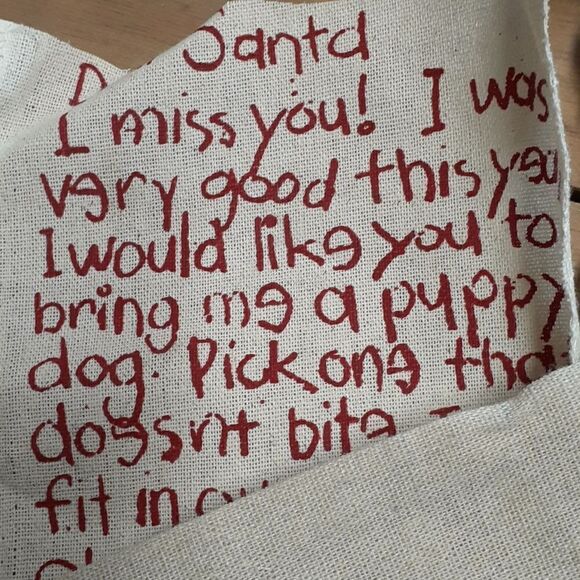 Santa
I miss you! I was
very good this yea
I would like you to
bring me a puppy
dog. Pick one tha
doesn't bite
fit in